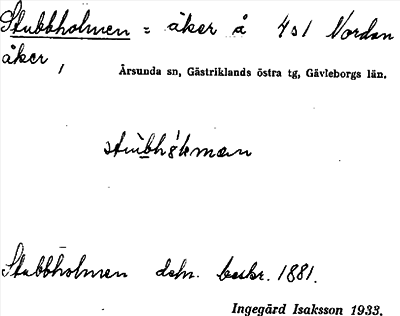 Stubbholmen = åker å 4s1 Nordan
åker,
Årsunda sn, Gästriklands östra tg, Gävleborgs län.
Stubbholmen dsn. beskr. 1881.
Ingegärd Isaksson 1933.